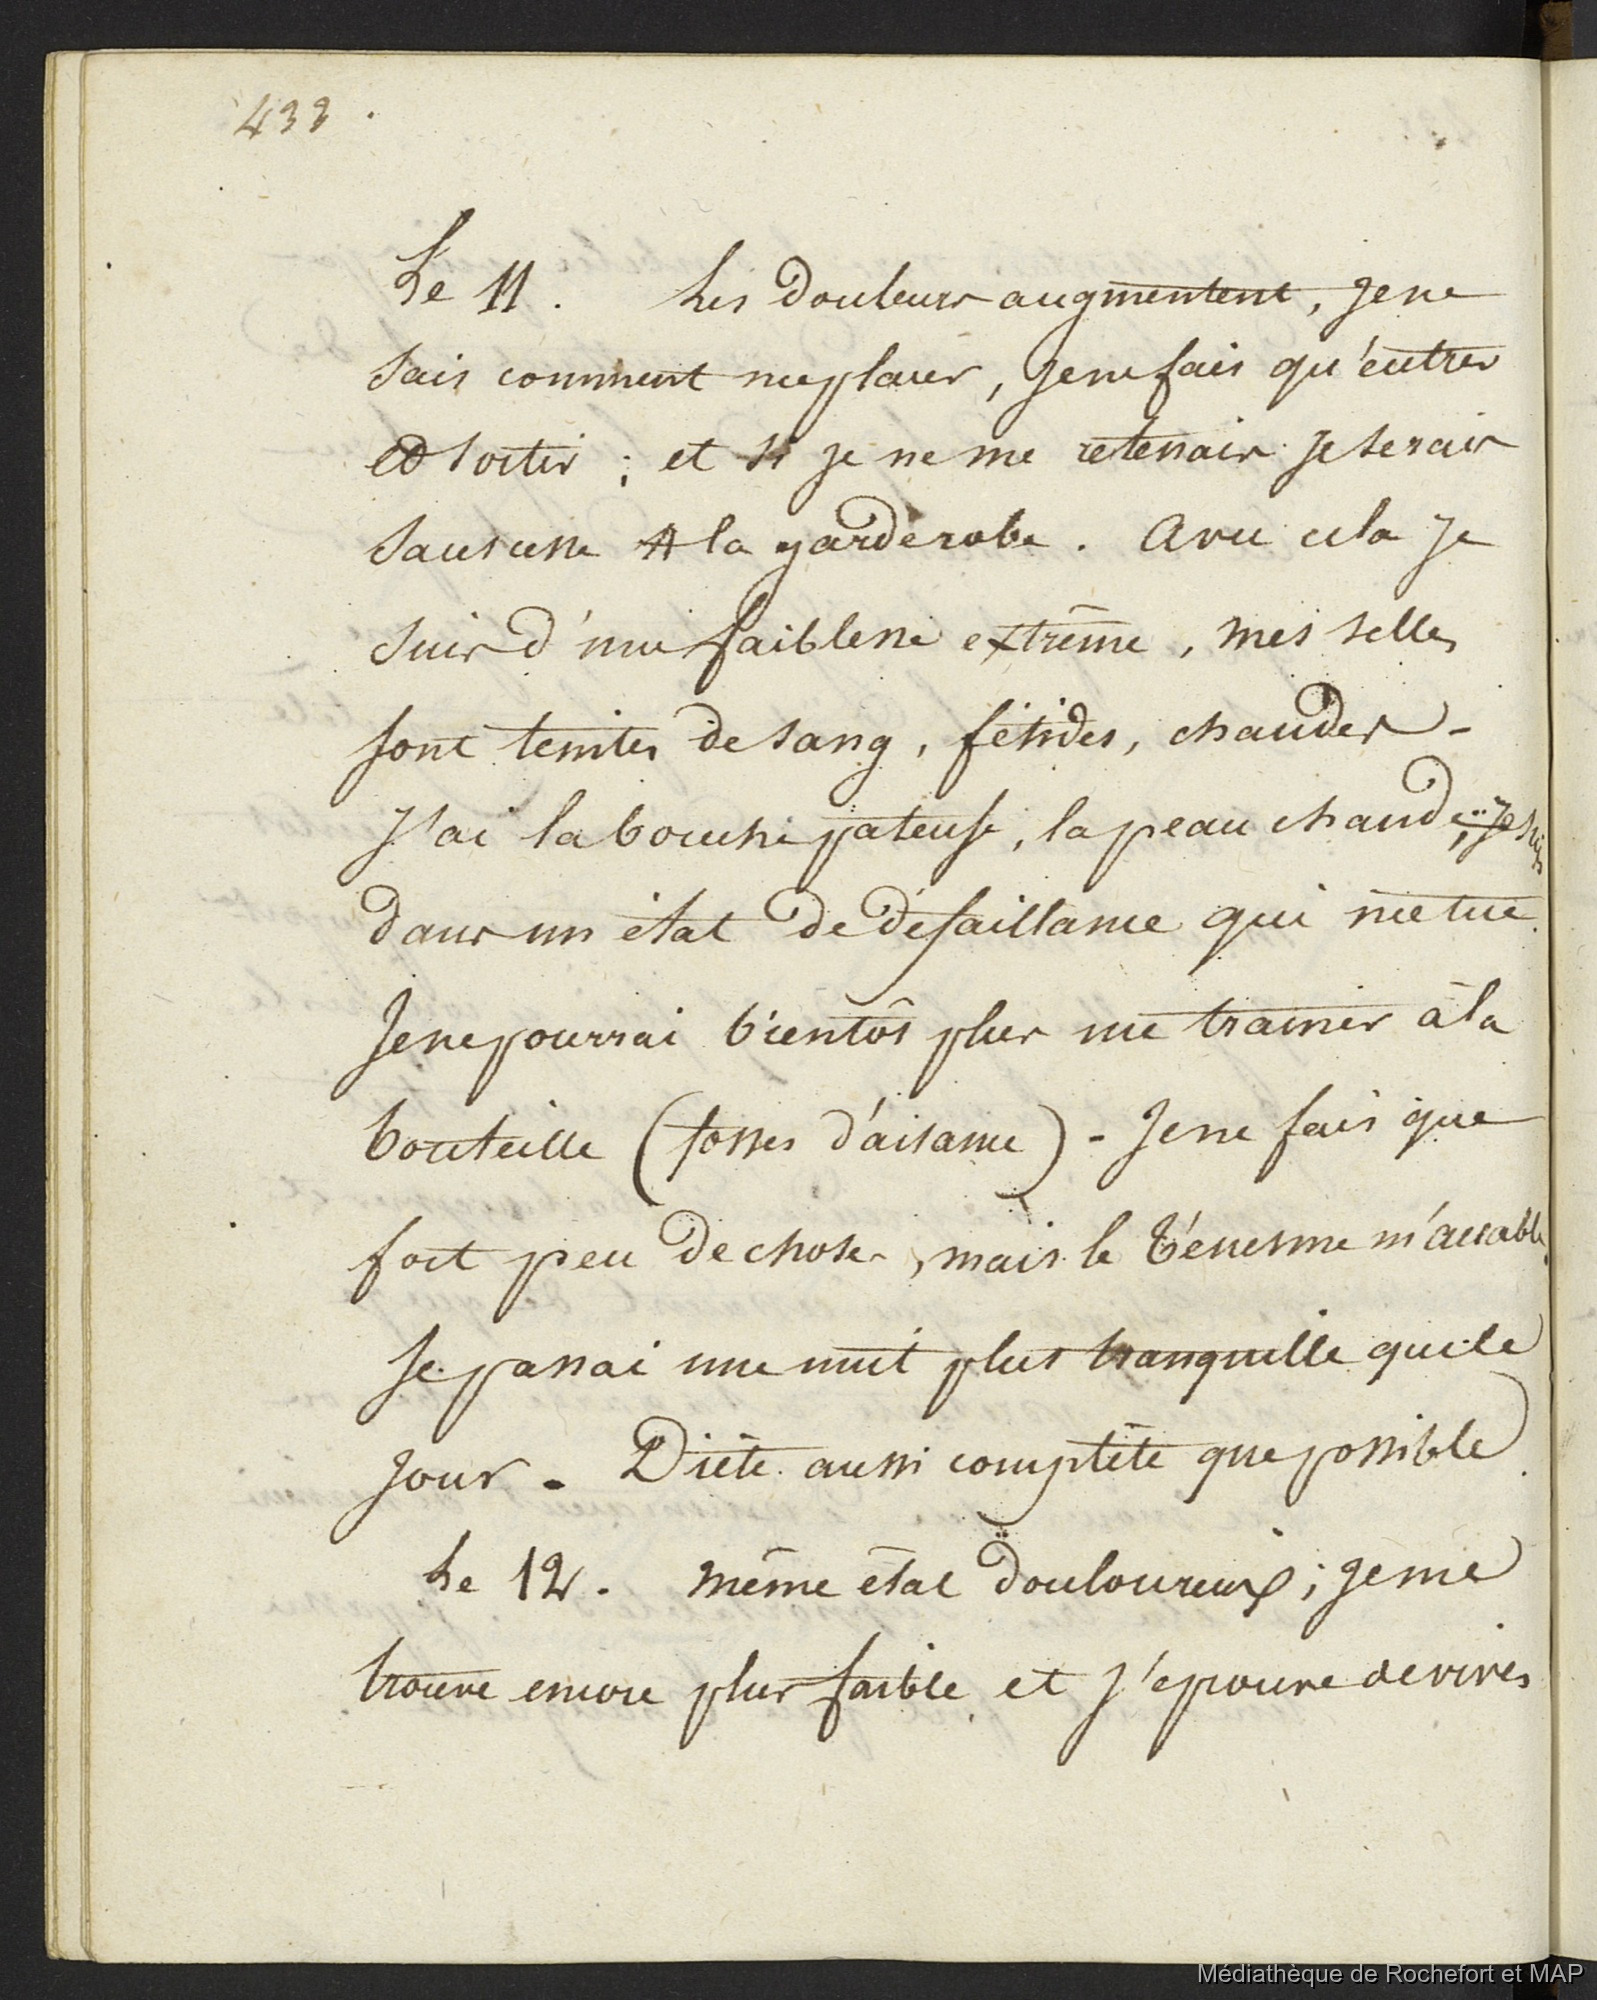 433.
Le 11. Les douleurs augmentent, je ne
sais comment me placer, je ne fais qu'entrer
et sortir ; et si je ne me retenais je serais
sans cesse à la garderobe. Avec cela je
suis d'une faiblesse extrême, mes selles
sont teintes de sang, fétides, chaudes -
J'ai la bouche pateuse, la peau chaude ; je suis
dans un état de défaillance qui me tue.
Je ne pourrai bientôt plus me trainer à la
bouteille (fosses d'aisance) - Je ne fais que
fort peu de chose, mais le ténesme m'accable.
Je passai une nuit plus tranquille que le
jour - Diète aussi complète que possible.
Le 12. même état douloureux ; je me
trouve encore plus faible et j'éprouve de vives
Médiathèque de Rochefort et MAP